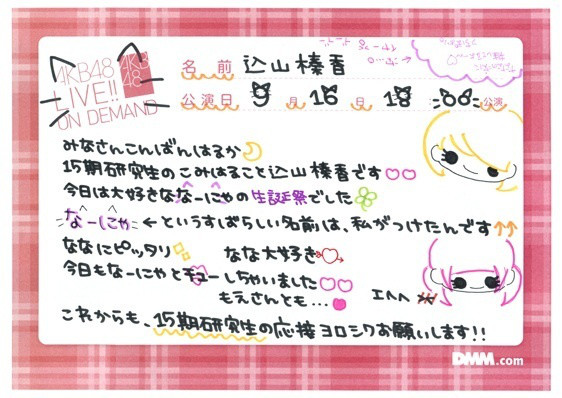 AKB48
LIVE!!
ON DEMAND
AKB
48
名前 込山榛香
公演日 9月16日 18:00公演
みなさんこんばんはるか
15期研究生のこみはること込山榛香です
今日は大好きななーにゃの生誕祭でした
なーにゃ ←というすばらしい名前は、私がつけたんです↑↑
ななにピッタリ なな大好き
今日もなーにゃとチューしちゃいました
もえさんとも… エヘヘ
これからも、15期研究生の応援ヨロシクお願いします!!
DMM.com